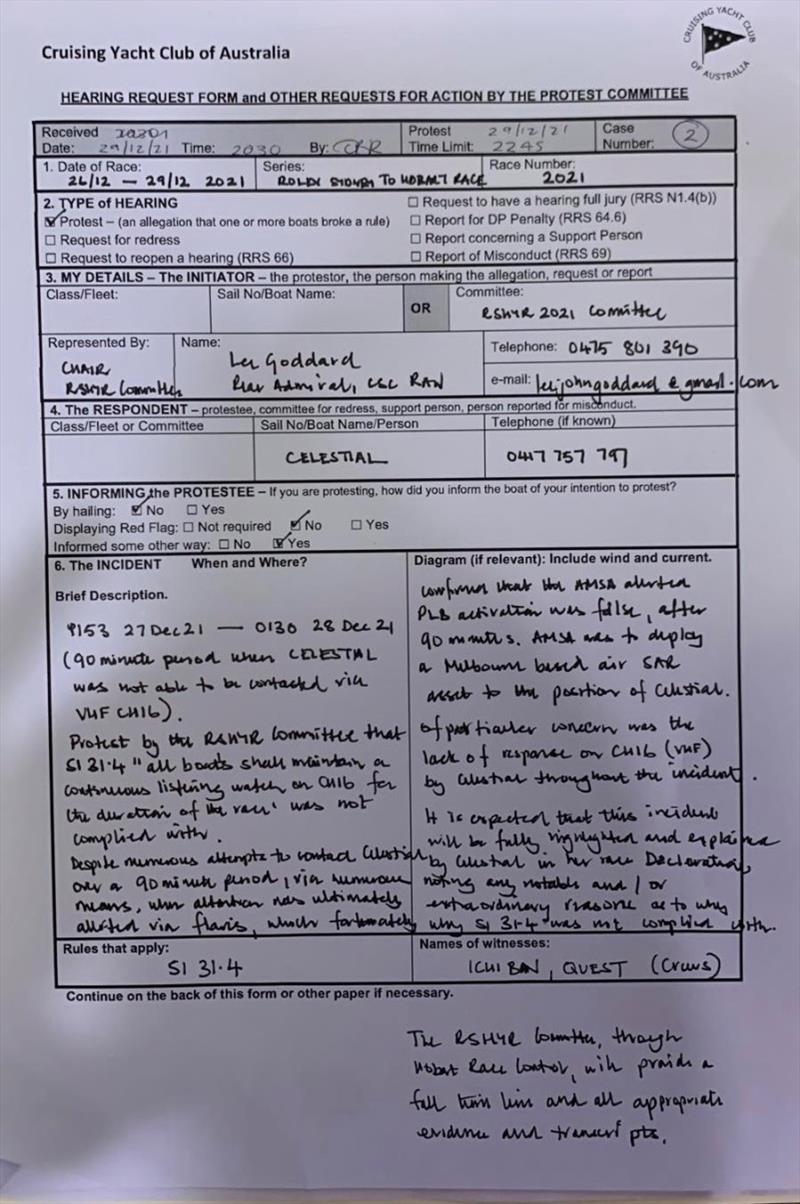 Cruising Yacht Club of Australia
CRUISING YACHT CLUB
OF AUSTRALIA
HEARING REQUEST FORM and OTHER REQUESTS FOR ACTION BY THE PROTEST COMMITTEE
Received
Date: 29/12/21 Time: 2030 By:
Protest 29/12/21
Time Limit: 2245
Case
Number: 2
1. Date of Race:
26/12 — 29/12 2021
Series:
ROLEX SYDNEY TO HOBART RACE
Race Number:
2021
2. TYPE of HEARING
☑ Protest – (an allegation that one or more boats broke a rule)
☐ Request for redress
☐ Request to reopen a hearing (RRS 66)
☐ Request to have a hearing full jury (RRS N1.4(b))
☐ Report for DP Penalty (RRS 64.6)
☐ Report concerning a Support Person
☐ Report of Misconduct (RRS 69)
3. MY DETAILS – The INITIATOR – the protestor, the person making the allegation, request or report
Class/Fleet:
Sail No/Boat Name:
OR
Committee:
RSHYR 2021 Committee
Represented By:
CHAIR
RSHYR Committee
Name:
Lee Goddard
Rear Admiral, CSC RAN
Telephone: 0475 801 390
e-mail: leejohngoddard@gmail.com
4. The RESPONDENT – protestee, committee for redress, support person, person reported for misconduct.
Class/Fleet or Committee
Sail No/Boat Name/Person
Telephone (if known)
CELESTIAL
0417 757 797
5. INFORMING the PROTESTEE – If you are protesting, how did you inform the boat of your intention to protest?
By hailing: ☑ No ☐ Yes
Displaying Red Flag: ☐ Not required ☑ No ☐ Yes
Informed some other way: ☐ No ☑ Yes
6. The INCIDENT When and Where?
Brief Description.
27 Dec 21 — 0130 28 Dec 21
(90 minute period when CELESTIAL
was not able to be contacted via
VHF CH16).
Protest by the RSHYR Committee that
SI 31.4 "all boats shall maintain a
continuous listening watch on CH16 for
the duration of the race' was not
complied with.
Despite numerous attempts to contact Celestial
over a 90 minute period, via numerous
means, when attention was ultimately
alerted via flares, which fortunately
Diagram (if relevant): Include wind and current.
confirmed that the AMSA alerted
PLB activation was false, after
90 minutes. AMSA was to deploy
a Melbourne based air SAR
asset to the position of Celestial.
Of particular concern was the
lack of response on CH16 (VHF)
by Celestial throughout the incident.
It is expected that this incident
will be fully highlighted and explained
by Celestial in her race Declaration,
noting any notable and / or
extraordinary reasons as to why
why SI 31.4 was not complied with.
Rules that apply:
SI 31.4
Names of witnesses:
ICHI BAN, QUEST (Crews)
Continue on the back of this form or other paper if necessary.
The RSHYR Committee, through
Hobart Race Control, will provide a
full time line and all appropriate
evidence and transcripts.